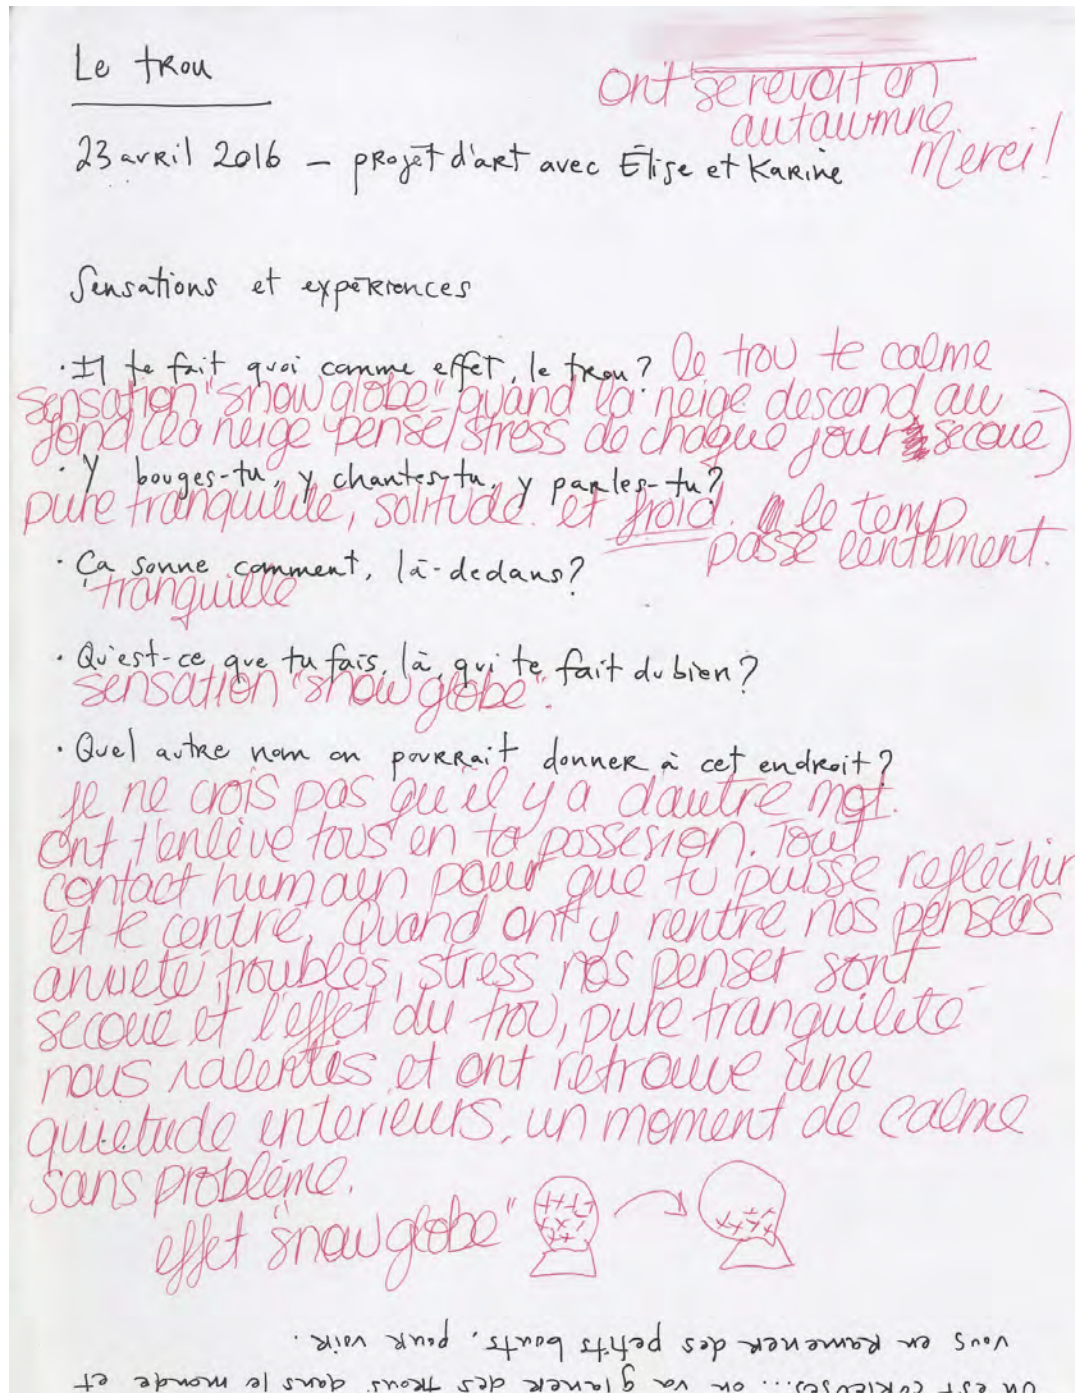 Le trou
ont se revoit en
autaumne.
Merci!
23 avril 2016 – projet d'art avec Élise et Karine
Sensations et expériences
· Il te fait quoi comme effet, le trou? le trou te calme
sensation "snow globe" quand la neige descend au
fond (la neige pense/stress de chaque jour secoue)
· Y bouges-tu, y chantes-tu, y parles-tu?
pure tranquilité, solitude. et froid. le temp
passe lentement.
· Ça sonne comment, là-dedans?
tranquille
· Qu'est-ce que tu fais, là, qui te fait du bien?
sensation "snow globe".
· Quel autre nom on pourrait donner à cet endroit?
je ne crois pas qu'il y a d'autre mot.
ont t'enlève tous en ta possesion. Tout
contact humain pour que tu puisse refléchir
et te centré. Quand ont y rentre nos pensées
anxieté, troubles, stress nos penser sont
secoué et l'effet du trou, pure tranquilité
nous ralentis et ont retrouve une
quietude interieurs, un moment de calme
sans problème.
effet "snow globe"
On est curieuses... on va glaner des trous dans le monde et
vous en ramener des petits bouts, pour voir.